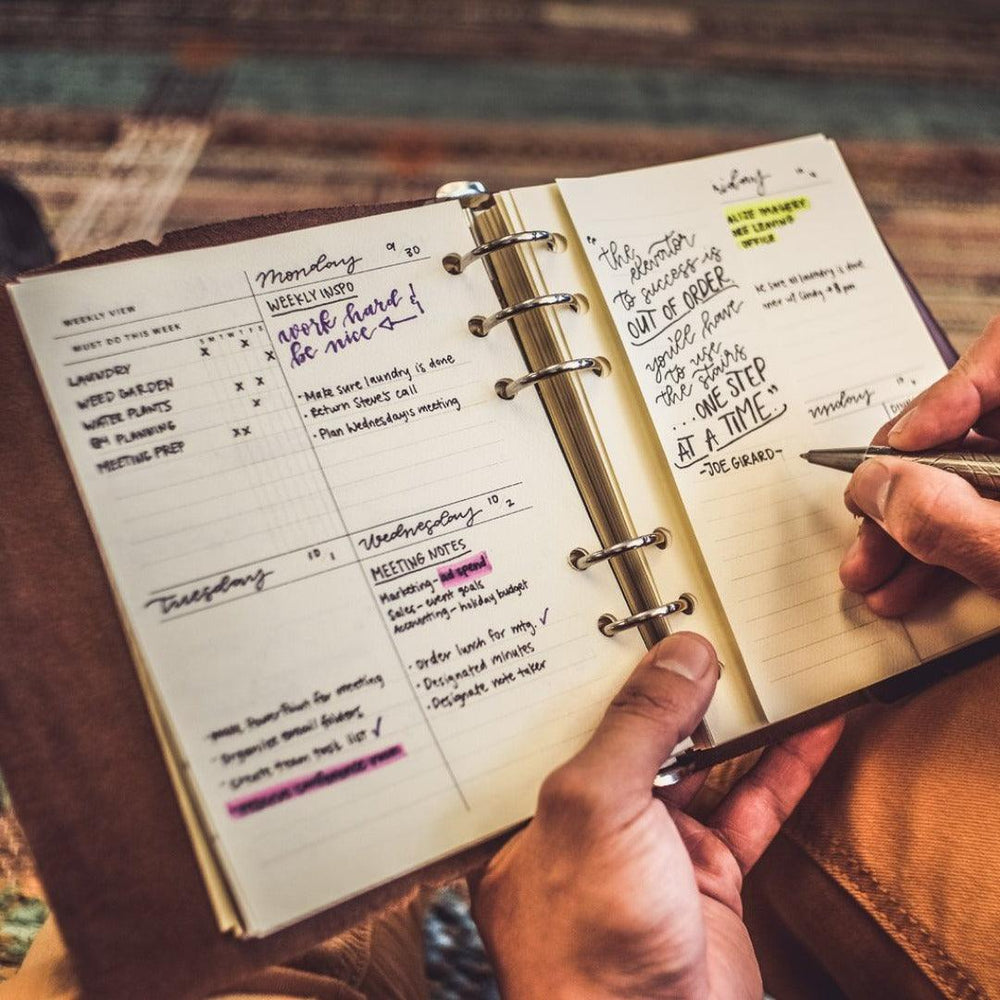 WEEKLY VIEW
MUST DO THIS WEEK
S M T W T F S
LAUNDRY X X
WEED GARDEN X
WATER PLANTS X X
Q4 PLANNING X
MEETING PREP XX
Monday 9 30
WEEKLY INSPO
work hard &
be nice
· Make sure laundry is done
· Return Steve's call
· Plan Wednesday's meeting
Tuesday 10 1
· Make PowerPoint for meeting
· Organize email folders
· Create team task list ✓
conference room
Wednesday 10 2
MEETING NOTES
Marketing - ad spend
Sales - event goals
Accounting - holiday budget
· Order lunch for mtg. ✓
· Designated minutes
· Designate note taker
"the
elevator
to success is
OUT OF ORDER
you'll have
to use
the stairs
...ONE STEP
AT A TIME"
-JOE GIRARD-
OFFICE
Be sure all laundry is done